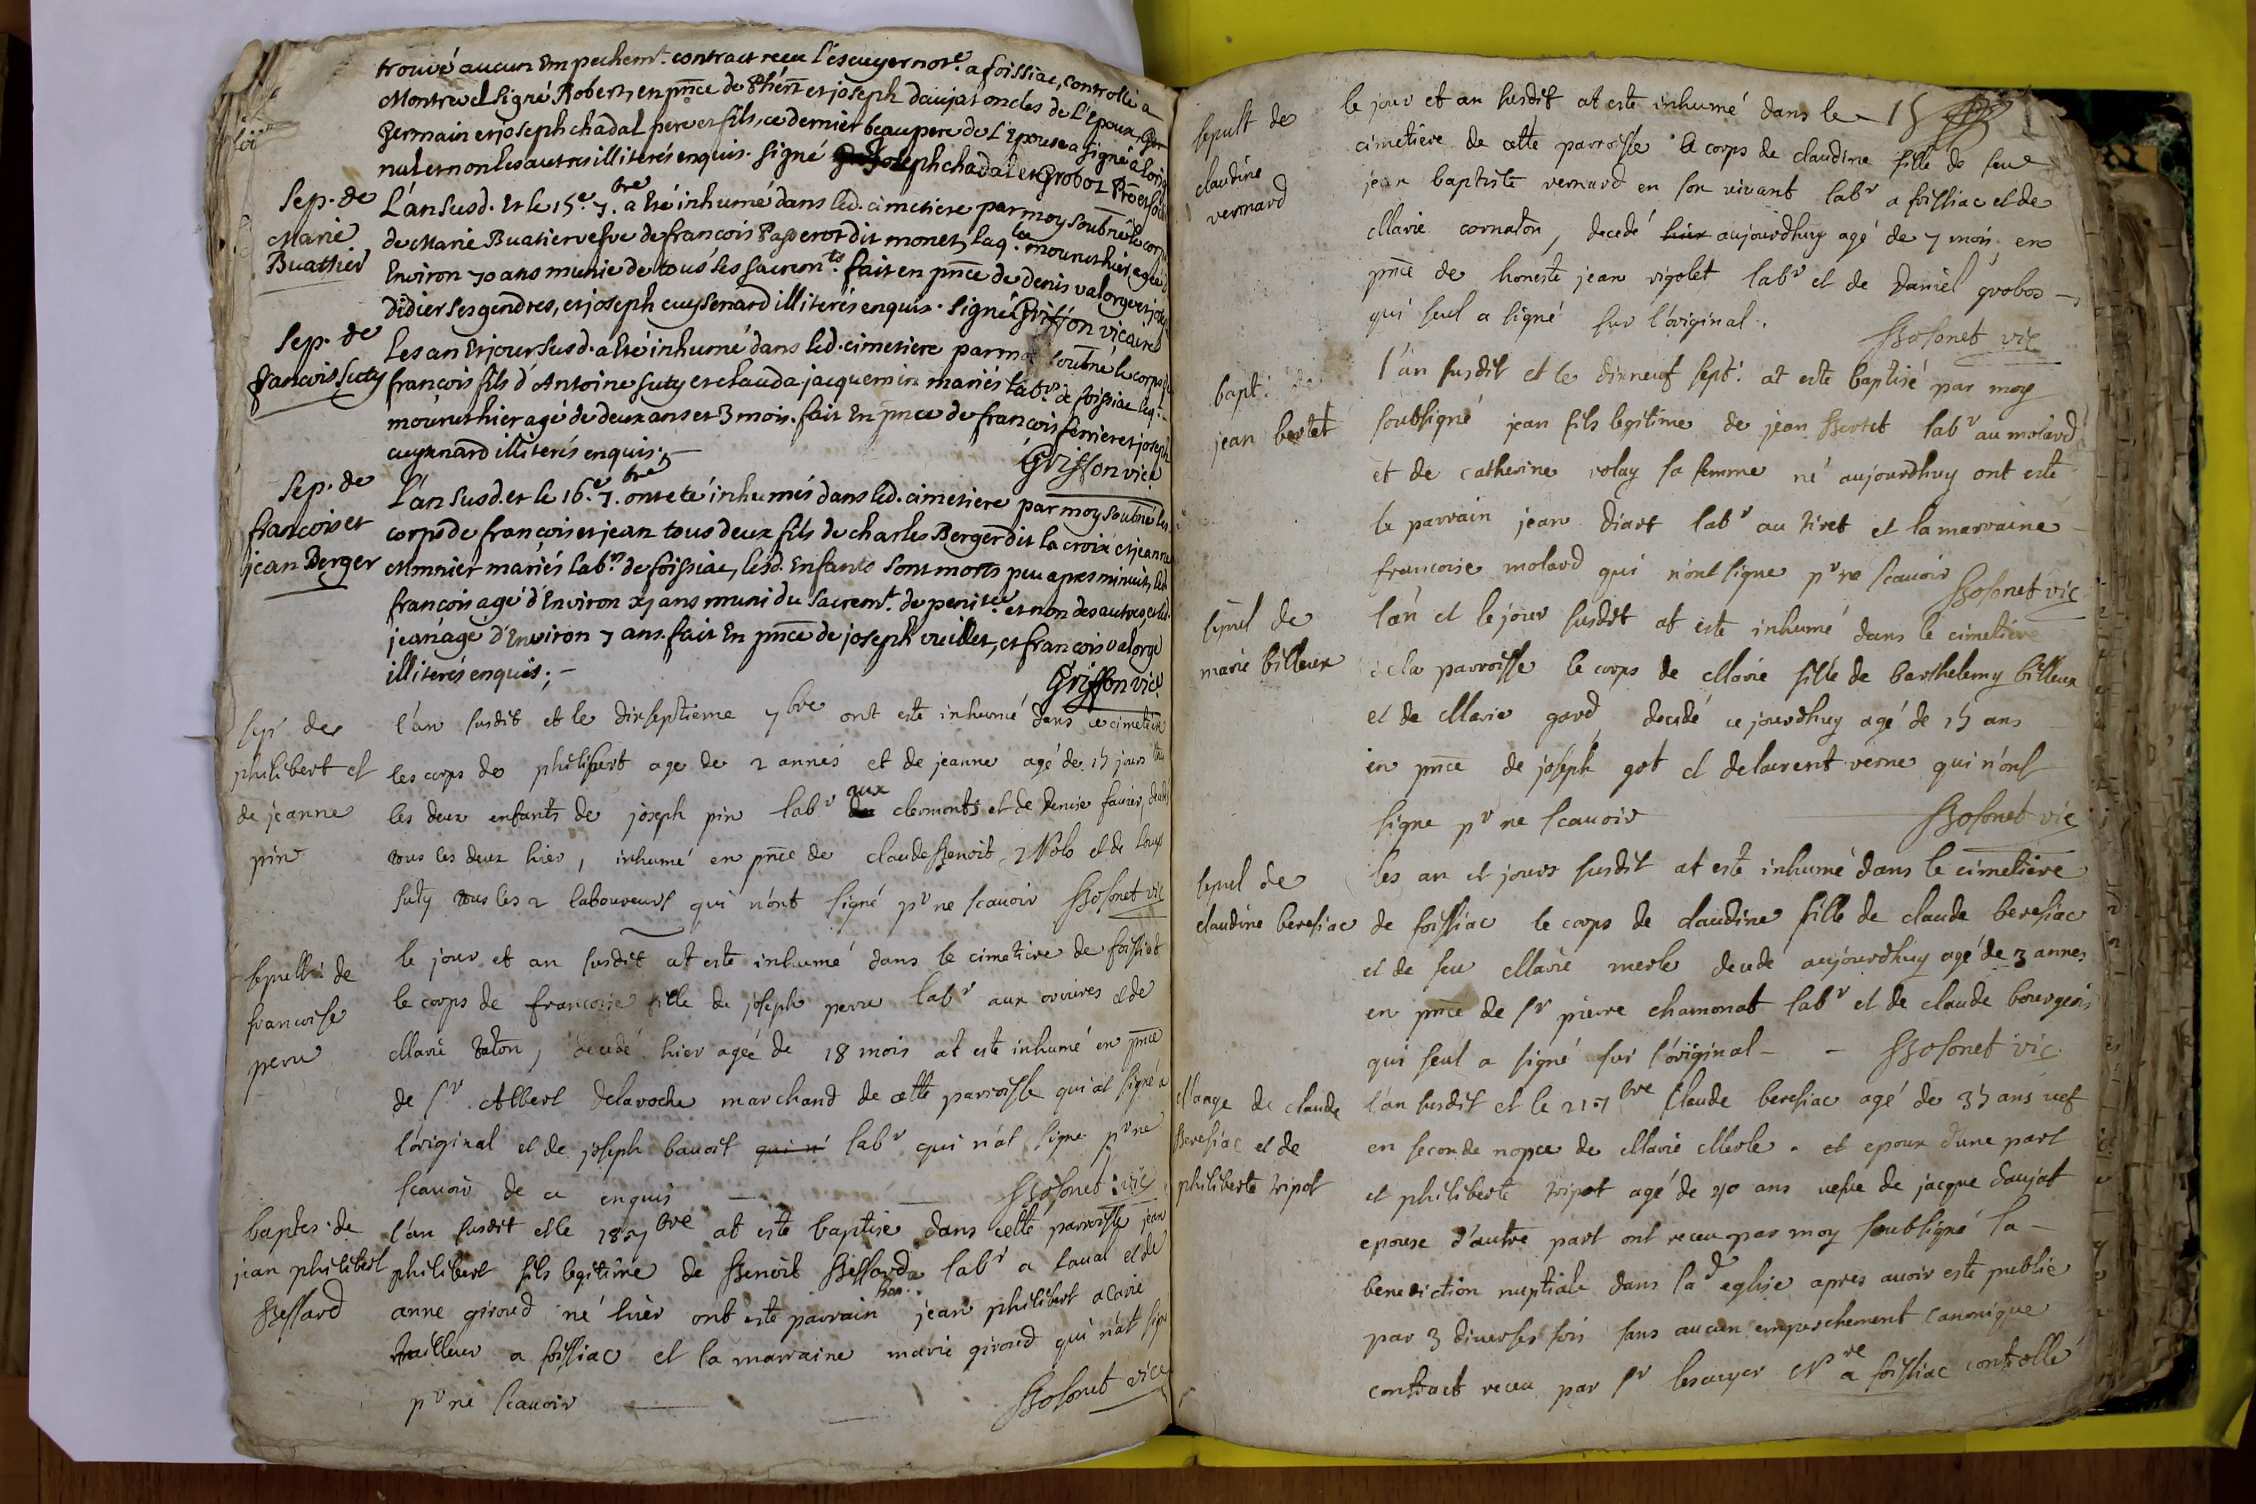 trouvé aucun Empechemt. contract receu l'escuyer notre. a foissiac, controllé a
Montrevel signé Robert, en pnce de Phert et joseph daujat oncles de l'Epoux,
Germain et joseph chadal pere et fils, ce dernier beaupere de l'Epouse a signé a l'orig
nal et non les autres illiterés enquis. Signé joseph chadal et Grobot
Sep. de
Marie
Buathier
L'an susd. et le 15e. 7.bre a Eté inhumé dans led. cimetiere par moy soubné le corps
de Marie Buatier vefve de francois Passerot dit monet, laq.lle mourut hier agée d
Environ 70 ans munie de tous les sacremts. fait en pnce de denis valorge et jos
didier ses gendres, et joseph cuysenard illiterés enquis. Signé Griffon vicaire
Sep. de
francois Suty
Les an Et jour susd. a Eté inhumé dans led. cimetiere par moy soubné le corps de
françois fils d'Antoine Suty et clauda jacquemin mariés labrs. de foissiac leq.
mourut hier agé de deux ans et 3 mois. fait En pnce de françois ferrier et joseph
cuysnard illiterés enquis. —
Griffon vice
Sep. de
francois et
jean Berger
L'an susd. et le 16e. 7.bre ont eté inhumés dans led. cimetiere par moy soubné les
corps de françois et jean tous deux fils de charles Berger dit la croix et jeanne
Monnier mariés labrs. de foissiac, lesd. Enfants sont morts peu apres minuit, led.
françois agé d'Environ xj ans muni du Sacremt. de penitce et non des autres, et led.
jean agé d'Environ 7 ans. fait En pnce de joseph vuillet, et francois valorge
illiterés enquis. —
Griffon vice
sep. de
philibert et
de jeanne
pin
l'an susdit et le dixseptieme 7bre ont este inhumé dans ce cimetiere
les corps de philibert age de 2 annés et de jeanne agé de 15 jours tous
les deux enfants de joseph pin labr aux clermonts et de denise favier, decedé
tous les deux hier, inhumé en pnce de claude Benoit et de
suty tous les 2 laboureurs qui n'ont signé pr ne scavoir Bosonet vic
sepult. de
francoise
peru
le jour et an susdit at este inhumé dans le cimetiere de foissiat
le corps de francoise fille de joseph peru labr aux orvires et de
Marie taton, decedé hier agéé de 18 mois at este inhumé en pnce
de sr. Albert delaroche marchand de cette parroisse qui at signé a
l'original et de joseph bavoit qui n' labr qui n'at signe pr ne
scavoir de ce enquis — — Bosonet vic
baptes. de
jean philibert
Bessard
l'an susdit et le 18 7bre at este baptise dans cette parroisse jean
philibert fils legitime de Benoit Bessard labr a laval et de
anne giroud né hier ont este parrain hon. jean philibert alarie
tailleur a foissiac et la marraine marie giroud qui n'at signé
pr ne scavoir — Bosonet vice
sepult de
claudine
vernard
le jour et an susdit at este inhumé dans le — 15
cimetiere de cette parroisse le corps de claudine fille de feu
jean baptiste vernard en son vivant labr a foissiac et de
Marie cornaton, decedé hier aujourdhuy agé de 7 mois en
pnce de honeste jean vigolet labr et de daniel grobos —
qui seul a signé sur l'original. Bosonet vic
bapt. de
jean bertet
l'an susdit et le dixneuf sept. at este baptisé par moy
soubsigné jean fils legitime de jean Bertet labr au molard
et de catherine volay sa femme né aujourdhuy ont este
le parrain jean diart labr au tiret et la marraine
francoise molard qui n'ont signe pr ne scavoir Bosonet vic
sepul de
marie billoux
l'an et le jour susdit at este inhumé dans le cimetiere
de la parroisse le corps de Marie fille de barthelemy billoux
et de Marie gard, decedé ce jourdhuy agé de 15 ans —
en pnce de joseph got et de laurent verne qui n'ont
signe pr ne scavoir — Bosonet vic
sepul de
claudine beresiac
les an et jours susdit at este inhumé dans le cimetiere
de foissiac le corps de claudine fille de claude beresiac
et de feu Marie merle decedé aujourdhuy agé de 3 annes
en pnce de sr pierre chamonat labr et de claude bourgeois
qui seul a signé sur l'original — — Bosonet vic
Mariage de claude
Beresiac et de
philiberte tripot
l'an susdit et le 21 7bre Claude beresiac agé de 35 ans vef
en seconde nopce de Marie Merle. et epoux d'une part
et philiberte tripot agé de 40 ans vefve de jacque daujat
epouse d'autre part ont receu par moy soubsigné la —
benediction nuptiale dans lad eglise apres avoir este publié
par 3 diverses fois sans aucun empeschement canonique
contract receu par sr lescuyer Nre a foissiac controllé